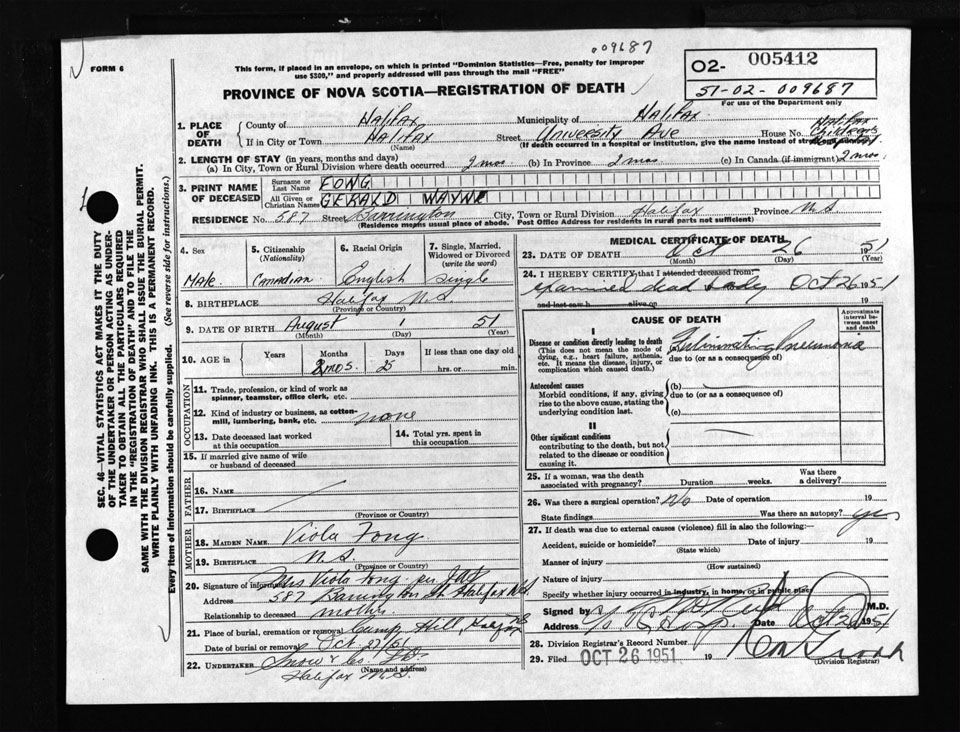 009687
FORM 6
This form, if placed in an envelope, on which is printed "Dominion Statistics—Free, penalty for improper
use $300," and properly addressed will pass through the mail "FREE"
O2- 005412
51-02-009687
For use of the Department only
PROVINCE OF NOVA SCOTIA—REGISTRATION OF DEATH
SEC. 46—VITAL STATISTICS ACT MAKES IT THE DUTY
OF THE UNDERTAKER OR PERSON ACTING AS UNDER-
TAKER TO OBTAIN ALL THE PARTICULARS REQUIRED
IN THE "REGISTRATION OF DEATH" AND TO FILE THE
SAME WITH THE DIVISION REGISTRAR WHO SHALL ISSUE THE BURIAL PERMIT.
WRITE PLAINLY WITH UNFADING INK. THIS IS A PERMANENT RECORD.
Every item of information should be carefully supplied. (See reverse side for instructions.)
1. PLACE OF DEATH
County of Halifax Municipality of Halifax
If in City or Town Halifax Street University Ave House No. Halifax Children's
(Name) (If death occurred in a hospital or institution, give the name instead of street
2. LENGTH OF STAY (in years, months and days)
(a) In City, Town or Rural Division where death occurred 2 mos. (b) In Province 2 mos (c) In Canada (if immigrant) 2 mos.
3. PRINT NAME OF DECEASED
Surname or Last Name FONG
All Given or Christian Names GERALD WAYNE
RESIDENCE No. 587 Street Barrington City, Town or Rural Division Halifax Province N.S
(Residence means usual place of abode. Post Office Address for residents in rural parts not sufficient)
4. Sex Male
5. Citizenship (Nationality) Canadian
6. Racial Origin English
7. Single, Married, Widowed or Divorced (write the word) single
8. BIRTHPLACE Halifax N.S.
(Province or Country)
9. DATE OF BIRTH August 1 51
(Month) (Day) (Year)
10. AGE in Years Months Days If less than one day old
2 mos. 25 hrs. or min.
OCCUPATION
11. Trade, profession, or kind of work as
spinner, teamster, office clerk, etc.
12. Kind of industry or business, as cotten-
mill, lumbering, bank, etc. none
13. Date deceased last worked
at this occupation
14. Total yrs. spent in
this occupation
15. If married give name of wife
or husband of deceased
FATHER
16. NAME
17. BIRTHPLACE
(Province or Country)
MOTHER
18. MAIDEN NAME Viola Fong
19. BIRTHPLACE N.S.
(Province or Country)
20. Signature of informant Mrs Viola Fong per
Address 587 Barrington St Halifax N.S.
Relationship to deceased mother
21. Place of burial, cremation or removal Camp Hill, Halifax NS
Date of burial or removal Oct 27/51
22. UNDERTAKER Snow & Co. Ltd
(Name and address)
Halifax N.S.
MEDICAL CERTIFICATE OF DEATH
23. DATE OF DEATH Oct 26 1951
(Month) (Day) (Year)
24. I HEREBY CERTIFY that I attended deceased from:
examined dead body Oct 26 1951
and last saw h alive on
CAUSE OF DEATH
Approximate interval between onset and death
I
Disease or condition directly leading to death
(This does not mean the mode of
dying, e.g., heart failure, asthenia,
etc. It means the disease, injury, or
complication which caused death.)
Fulminating Pneumonia
due to (or as a consequence of)
Antecedent causes
Morbid conditions, if any, giving
rise to the above cause, stating the
underlying condition last.
(b)
due to (or as a consequence of)
(c)
II
Other significant conditions
contributing to the death, but not
related to the disease or condition
causing it.
25. If a woman, was the death
associated with pregnancy? Duration weeks. Was there a delivery?
26. Was there a surgical operation? No Date of operation 19
State findings Was there an autopsy? yes
27. If death was due to external causes (violence) fill in also the following:—
Accident, suicide or homicide? Date of injury 19
(State which)
Manner of injury
(How sustained)
Nature of injury
Specify whether injury occurred in industry, in home, or in public place
Signed by M.D.
Address Date Oct 26 1951
28. Division Registrar's Record Number
29. Filed OCT 26 1951 19
(Division Registrar)